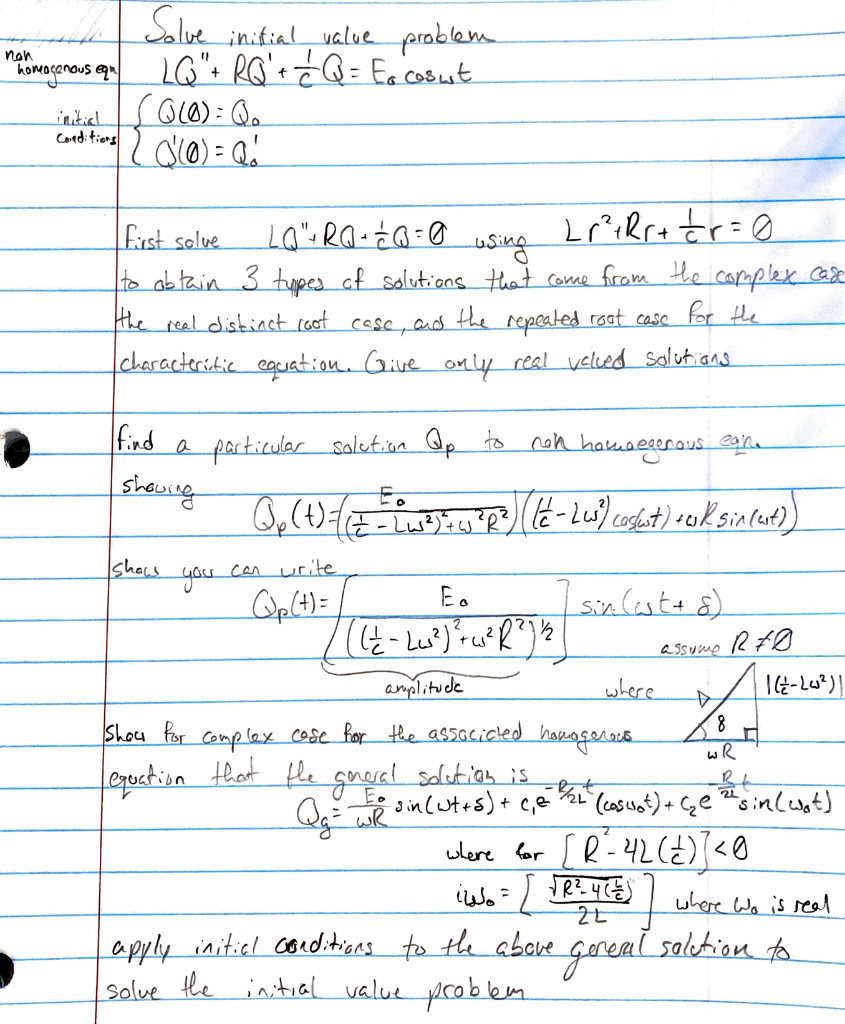 Solve initial value problem
non
homogenous eqn LQ" + RQ' + 1/c Q = E₀ cosωt
initial
conditions { Q(0) = Q₀
Q'(0) = Q₀'
First solve LQ" + RQ + 1/c Q = 0 using Lr² + Rr + 1/c r = 0
to obtain 3 types of solutions that come from the complex case
the real distinct root case, and the repeated root case for the
characteristic equation. Give only real valued solutions
find a particular solution Qp to non homoegenous eqn.
showing
Qp(t) = (E₀ / ((1/c - Lω²)² + ω²R²)) ((1/c - Lω²) cos(ωt) + ωR sin(ωt))
show you can write
Qp(t) = [E₀ / ((1/c - Lω²)² + ω²R²)^1/2] sin(ωt + δ)
assume R ≠ 0
amplitude where |(1/c - Lω²)|
δ
ωR
Show for complex case for the associated homogenous
equation that the general solution is
Qg = E₀/ωR sin(ωt+δ) + c₁e^(-R/2L t) (cosω₀t) + c₂e^(-R/2L t) sin(ω₀t)
where for [R² - 4L(1/c)] < 0
iω₀ = [√(R² - 4(L/c)) / 2L] where ω₀ is real
apply initial conditions to the above general solution to
solve the initial value problem